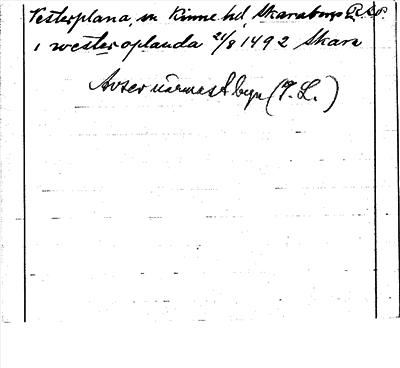 Vesterplana, sn Kinne hd, Skaraborgs
i westeroplanda 21/8 1492 Skara
Avser närmast byn (I. L.)